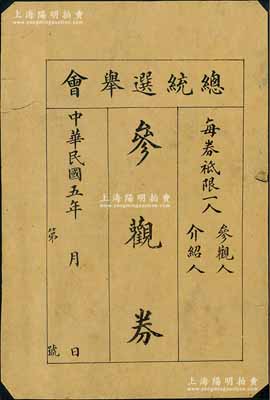 上海陽明拍賣
www.yangmingauction.com
上海陽明拍賣
總統選舉會
每券祗限一人
參觀人
介紹人
參觀券
中華民國五年 月 日
第 號
上海陽明拍賣
www.yangmingauction.com
上海陽明拍賣
www.yangmingauction.com
上海陽明拍賣
上海陽明拍賣